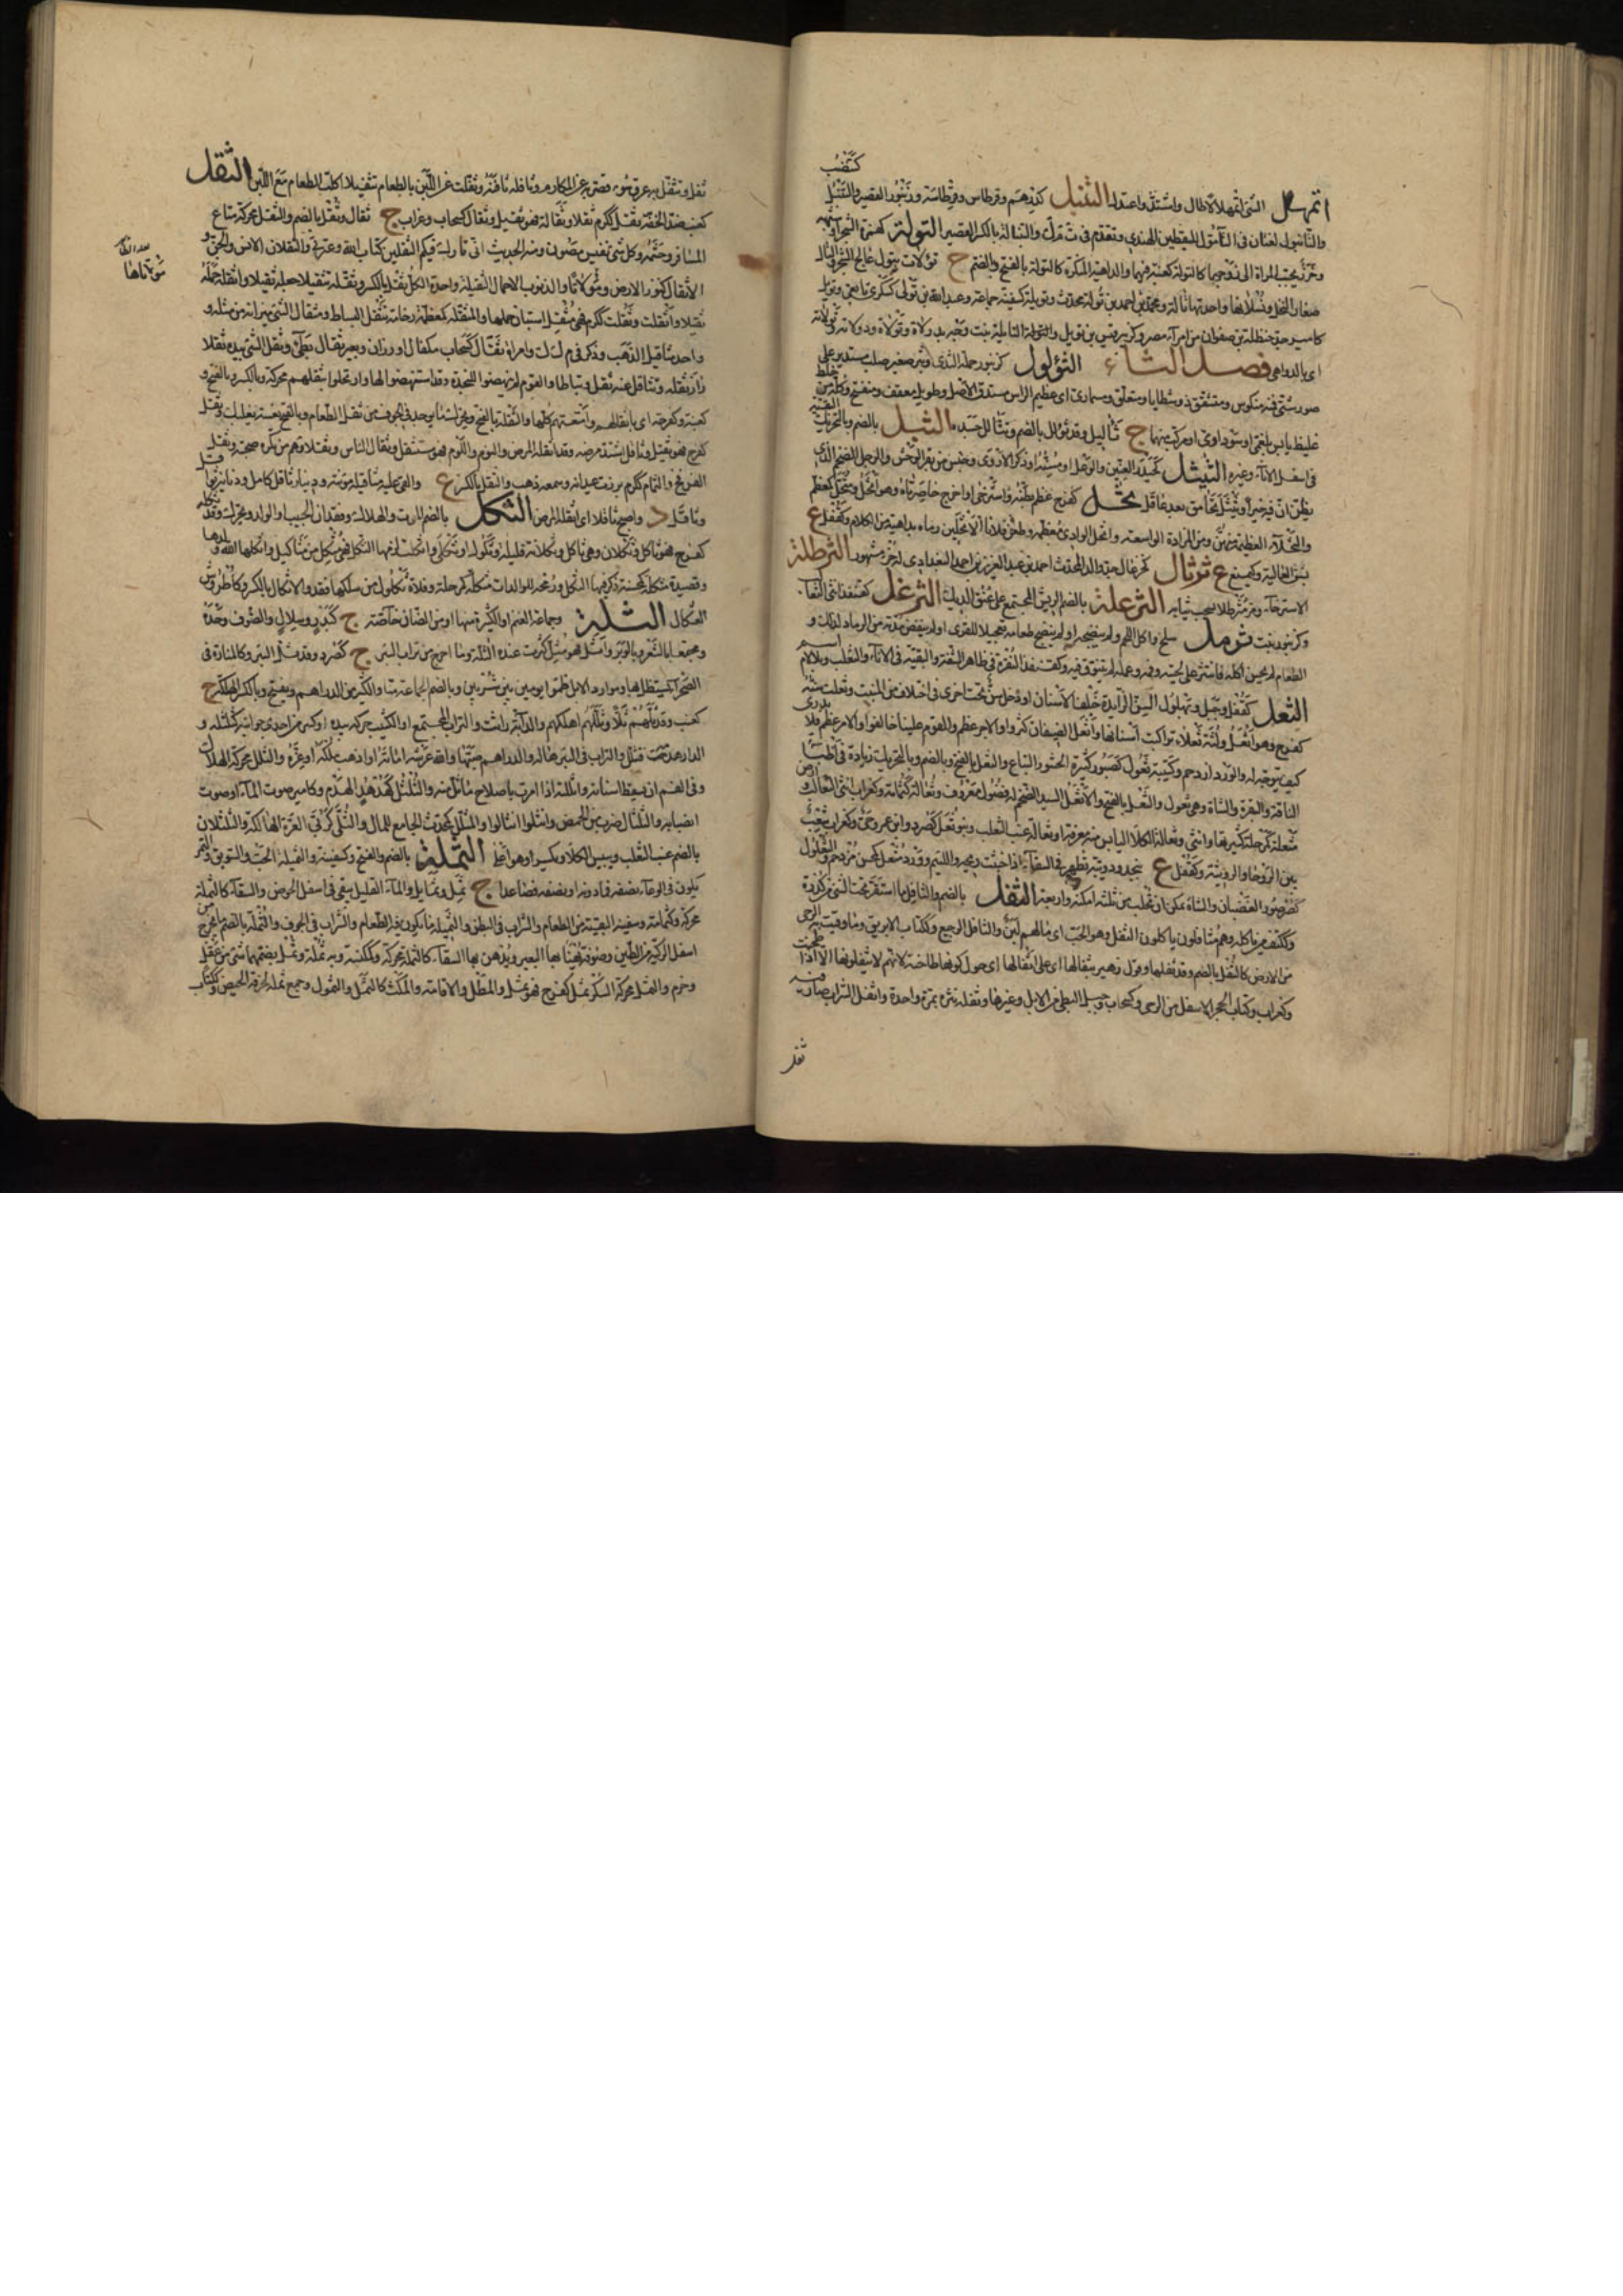 كقنفذ
اتمهل الشئ اتمهلالا طال واشتد واعتدل التنبل كدرهم وقرطاس وقرطاسة وزنبور القصير والتنبل
والتانبول لغتان في التأمول لليقطين الهندي وتقدم في ت م ل والتنبالة بالكسر القصير التولة كهمزة السحر او شبهه
وخرزة تحبب المراة الى زوجها كالتولة كعنبة فيهما والداهية المنكرة كالتولة بالفتح والضم ج تولات يتول عالج السحر والتال
صغار النخل وفسلانها واحدتها تالة ومحمد بن احمد بن تولة محدث وتويلة كسفينة جماعة وعبد الله بن تولى كسكرى تابعي وتويل
كامير جد حنظلة بن صفوان من امرآء مصر وكزبير قيس بن تويل
اى بالدواهي فصل الثاء الثؤلول كزنبور حلمة الثدى وبثر صغير صلب مستدير على
صور شتى فمنه منكوس ومتشقق ذو شظايا ومتعلق ومسماري اى عظيم الراس مستدق الاصل وطويل معقف ومنفتح وكله من خلط
غليظ يابس بلغمي او سوداوي او مركب منهما ج ثآليل وقد ثؤلل بالضم وتثالل جسده الثبل بالضم وبالتحريك البقية
فى اسفل الانآء وغيره الثيتل كحيدر العنين والوعل او مسنه او ذكر الاروى وجنس من بقر الوحش والرجل الضخم الذى
يظن ان فيه خيرا وتيثل تحامق بعد تعاقل ثجل كفرح عظم بطنه واسترخى او خرج خاصرتاه وهو اثجل ومثجل كمعظم
والثجلآء العظيمة منهن ومن المزادة الواسعة
ع ثرثال كخزعال جد والد المحدث احمد بن عبد العزيز بن احمد البغدادي له جزء مشهور الثرطلة
الاسترخآء ومر مثرطلا يسحب ثيابه الثرعلة بالضم الريش المجتمع على عنق الديك الثرغل كقنفذ انثى الثعالب
وكزنبور نبت ثرمل سلح واكل اللحم ولم ينضجه او لم ينضج طعامه تعجيلا للقرى او لم ينفض ملته من الرماد لذلك و
الطعام لم يحسن اكله فانتثر على لحيته وفمه وعمله لم يتنوق فيه وكقنفذة النقرة في ظاهر الشفة والبقية فى الانآء والثعلب وبلا لام اسم
الثعل كقفل وجبل وبهلول السن الزآيدة خلف الاسنان او دخول سن تحت اخرى في اختلاف من المنبت وثعلت سنه
كفرح وهو اثعل ولثة ثعلاء تراكبت اسنانها واثعل الضيفان كثروا والامر عظم والقوم علينا خالفوا والامر عظم فلا يدرى
كيف يتوجه له والورد ازدحم وكتيبة ثعول كصبور كثيرة الحشو والتباع والثعل بالفتح وبالضم وبالتحريك زيادة فى اطبآء
الناقة والبقرة والشاة وهي ثعول والثعل بالفتح والاثعل السيد الضخم له فضول معروف وثعالة كثمامة وكغراب انثى الثعالب وارض
مثعلة كمرحلة كثيرتها وانثى وثعالة الكلا اليابس منه معرفة او ثعالة عنب الثعلب وبنو ثعل كصرد وابن عمرو حي وكغراب شعب
بين الروحا والرويثة وكقفل ع بنجد ودويبة تظهر فى السقآء اذا خبثت ريحه واللئيم وورد مثعل كمحسن مزدحم والثعلول
كعصفور الغضبان والشاة يمكن ان تحلب من ثلثة امكنة واربعة الثفل بالضم والثافل ما استقر تحت الشئ من كدرة
وككتف من ياكله وهم مثافلون ياكلون الثفل وهو الحب اى ما لهم لبن والثافل الرجيع وككتاب الابريق وما وقيت به الرحى
من الارض كالثفل بالضم وقد ثفلها وقول زهير بثفالها اى على ثفالها اى حول كونها طاحنة لانهم لا يثفلونها الا اذا طحنت
وكغراب وكتاب الحجر الاسفل من الرحى وكسحاب وجبل البطئ من الابل وغيرها وثفله نثره بمرة واحدة واثفل الشراب صار فيه
ثفل
ثفل وتثفله عرق سوء قصر به عن المكارم وثافله ثافنه وثفلت عن اللبن بالطعام تثفيلا اكلت الطعام مع اللبن الثقل
كعنب ضد الخفة ثقل ككرم ثقلا وثقالة فهو ثقيل وثقال كسحاب وغراب ج ثقال وثقل بالضم والثقل محركة متاع
المسافر وحشمه وكل شئ نفيس مصون ومنه الحديث انى تارك فيكم الثقلين كتاب الله وعترتي والثقلان الانس والجن و
الاثقال كنوز الارض وموتاها والذنوب والاحمال الثقيلة واحدة الكل ثقل بالكسر وثقله تثقيلا جعله ثقيلا واثقله حمله
ثقيلا واثقلت وثقلت ككرم فهي مثقل استبان حملها والمثقلة كمعظمة رخامة يثقل بها البساط ومثقال الشئ ميزانه من مثله و
واحد مثاقيل الذهب وذكر في م ك ك وامراة ثقال كسحاب مكفال او رزان وبعير ثقال بطئ وثقل الشئ بيده ثقلا
راز ثقله وتثاقل عنه ثقل وتباطا والقوم لم ينهضوا للنجدة وقد استنهضوا لها وارتحلوا بثقلهم محركة وبالكسر وبالفتح و
كعنبة وكفرحة اى باثقالهم وامتعتهم كلها والثقلة بالفتح ويحرك ما يوجد في الجوف من ثقل الطعام وبالفتح نعسة تغلبك وثقل
كفرح فهو ثقيل وثاقل اشتد مرضه وقد اثقله المرض والنوم واللوم فهو مستثقل وثقال الناس وثقلاؤهم من تكره صحبته وثقل
العرفج والثمام ككرم تروت عيدانه وسمعه ذهب والثقل بالكسر ع والقى عليه مثاقيله مؤنته ودينار ثاقل كامل ودنانير ثواقل
وثاقل د واصبح ثاقلا اى اثقله المرض الثكل بالضم الموت والهلاك وفقدان الحبيب او الولد ويحرك وقد ثكله
كفرح فهو ثاكل وثكلان وهي ثاكل وثكلانة قليلة وثكول وثكلى واثكلت لزمها الثكل فهي مثكل من مثاكيل واثكلها الله ولدها
وقصيدة مثكلة كمحسنة ذكر فيها الثكل ورمحه للوالدات مثكلة كمرحلة وفلاة ثكول من سلكها فقد والاثكال بالكسر وكاطروش
العثكال الثلة جماعة الغنم او الكثيرة منها او من الضان خآصة ج كبدر وسلال والصوف وحده
ومجتمعا بالشعر وبالوبر واثل فهو مثل كثرت عنده الثلة وما اخرج من تراب البئر ج كصرد وقد ثل البئر وكالمنارة فى
الصحرآء يستظل بها وموارد الابل ظمء يومين بين شربين وبالضم الجماعة منا والكثير من الدراهم ويفتح وبالكسر الهلكة ج
كعنب وقد ثلهم ثلا وثللهم اهلكهم والدآبة راثت والتراب المجتمع او الكثيب حركه بيده او كسر من احدى جوانبه كثلثله و
الدار هدمت فتثلل والتراب فى البئر هاله والدراهم صبها والله عرشه اماته او اذهب ملكه او عزه والثلل محركة الهلاك
وفى الغنم ان تسقط اسنانه واثللته اذا امرت باصلاح ما ثل منه والثلثل كهدهد الهدم وكامير صوت المآء او صوت
انصبابه والثلثال ضرب من الحمض وانثلوا انثالوا والمثلل كمحدث الجامع للمال والثلى كربى العزة الهالكة والثلثلان
بالضم عنب الثعلب ويبيس الكلا ويكسر او هو اعلى الثملة بالضم والفتح وكسفينة والثميلة الحب والسويق والتمر
يكون فى الوعآء نصفه فما دونه او نصفه فصاعدا ج ثمل وثمايل والمآء القليل يبقى فى اسفل الحوض والسقآء كالثملة
محركة وكثمامة وسفينة البقية من الطعام والشراب فى البطن والثميلة ما يكون فيه الطعام والشراب فى الجوف والثملة بالضم ما يخرج من
اسفل الركية من الطين وصوفة يهنأ بها البعير ويدهن بها السقآء كالثملة محركة وكمكنسة وبه ثملة وثمل بضمهما شئ من عقل
وحزم والثمل محركة السكر ثمل كفرح فهو ثمل والظل والاقامة والمكث كالثمل والثمول وجمع ثملة لخرقة الحيض وككتاب
موتاها